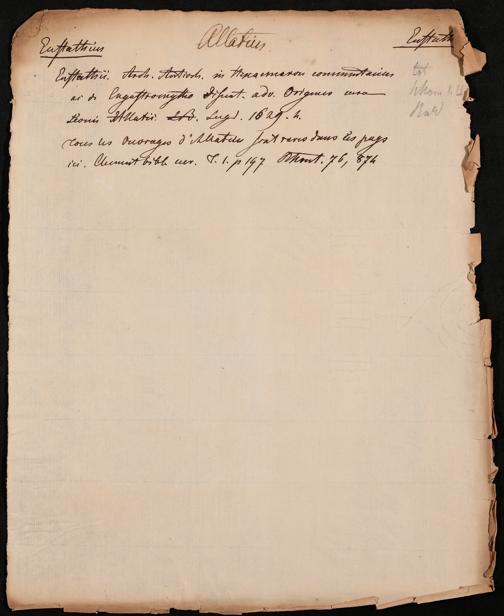 Eustathius
Allatius
Eustath
Eustathii. Arch. Antioch. in Hexaemeron commentarius
ac de Engastromytho disput. adv. Origenem cura
Leonis Allatii. Lugd. 1629. 4.
Tous les Ouvrages d'Allatius sont rares dans les pays
ici. Clement bibl. cur. T. 1. p 197 76, 874